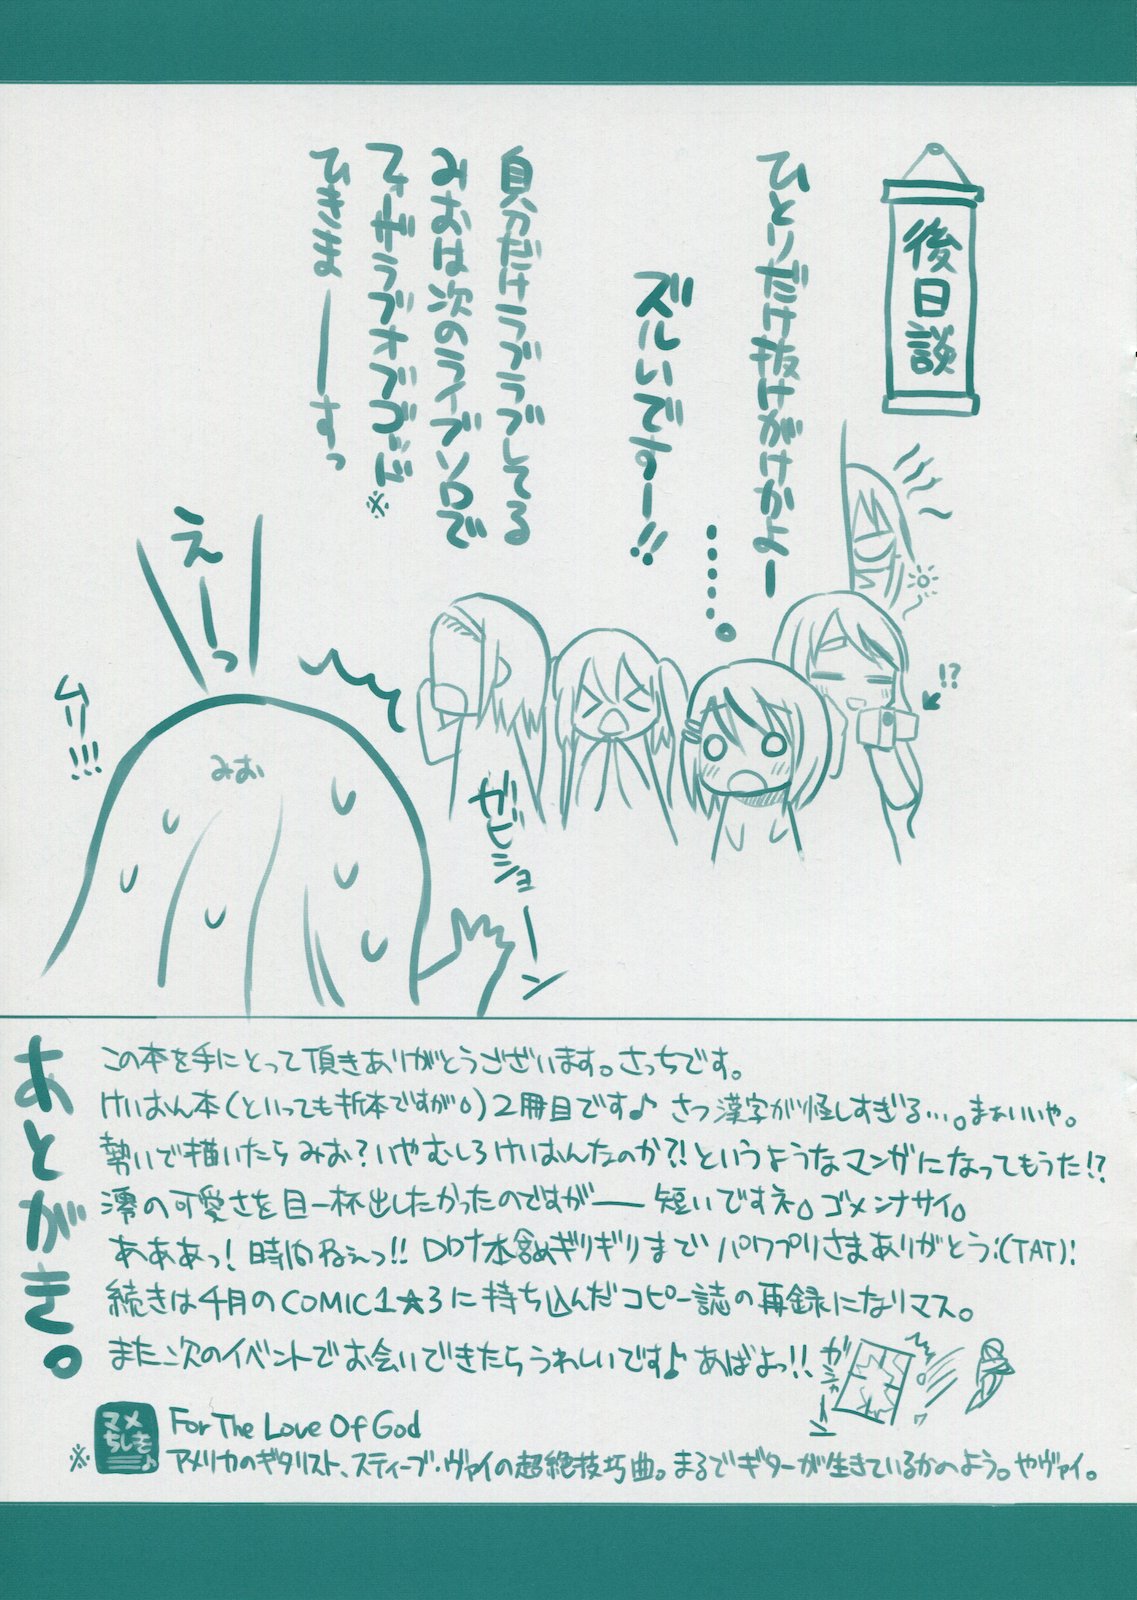 後日談
ひとりだけ抜けがけかよー
ズルいですー!!
自分だけラブラブしてる
みおは次のライブソロで
フォーザラブオブゴッド※
ひきまーーーすっ
!?
えーっ
ムリ!!!
みお
ガビショーン
あとがき。
この本を手にとって頂きありがとうございます。さっちです。
けいおん本(といっても折本ですが。)2冊目です♪ さっ漢字が怪しすぎる…。まぁいいや。
勢いで描いたらみお?いやむしろけいおんなのか?!というようなマンガになってもうた!?
澪の可愛さを目一杯出したかったのですがー 短いですネ。ゴメンナサイ。
あああっ! 時間ねぇっ!! ギリギリまで パワプリさまありがとう:(TAT):
続きは4月のCOMIC1★3に持ち込んだコピー誌の再録になりマス。
また次のイベントでお会いできたらうれしいです♪ あばよっ!!
ガシャーン
マメちしき♪
For The Love Of God
※アメリカのギタリスト、スティーブ・ヴァイの超絶技巧曲。まるでギターが生きているかのよう。ヤヴァイ。